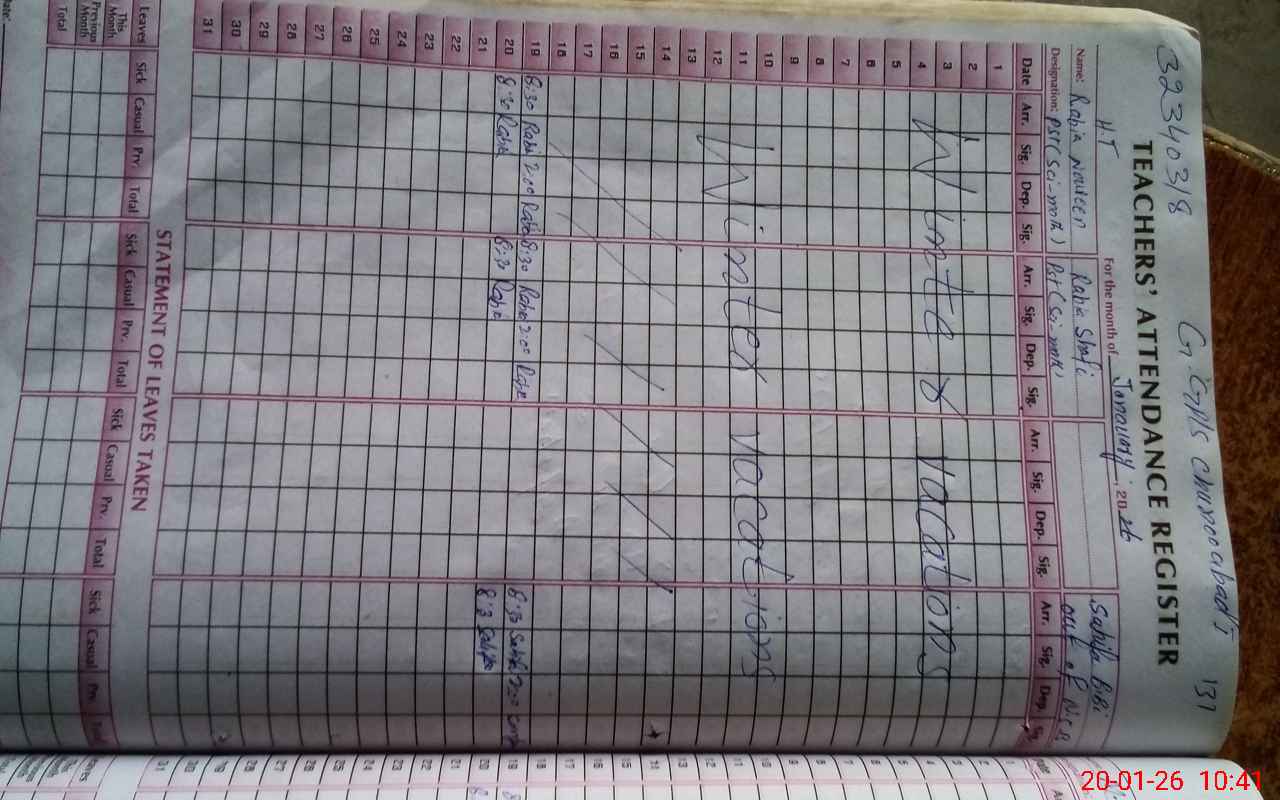 32340318 G. GPS 131
TEACHERS' ATTENDANCE REGISTER
For the month of January, 2026
H.T
Name: Rabia Noureen Rabia Shafi Sabija Bibi
Designation: PST (Sci-math) PST (Sci-math) out of N.S.B
Date Arr. Sig. Dep. Sig. Arr. Sig. Dep. Sig. Arr. Sig. Dep. Sig. Arr. Sig. Dep. Sig.
1
2
3
4 Winter Vacations
5
6
7
8
9
10
11 Winter Vacations
12
13
14
15
16
17
18
19 8:30 Rabia 2:00 Rabia 8:30 Rabia 2:00 Rabia 8:30
20 8:30 Rabia 8:30 Rabia 8:3
21
22
23
24
25
26
27
28
29
30
31
STATEMENT OF LEAVES TAKEN
Leaves Sick Casual Prv. Total Sick Casual Prv. Total Sick Casual Prv. Total Sick Casual Prv. Total
This Month
Previous Month
Total
Date:
20-01-26 10:41